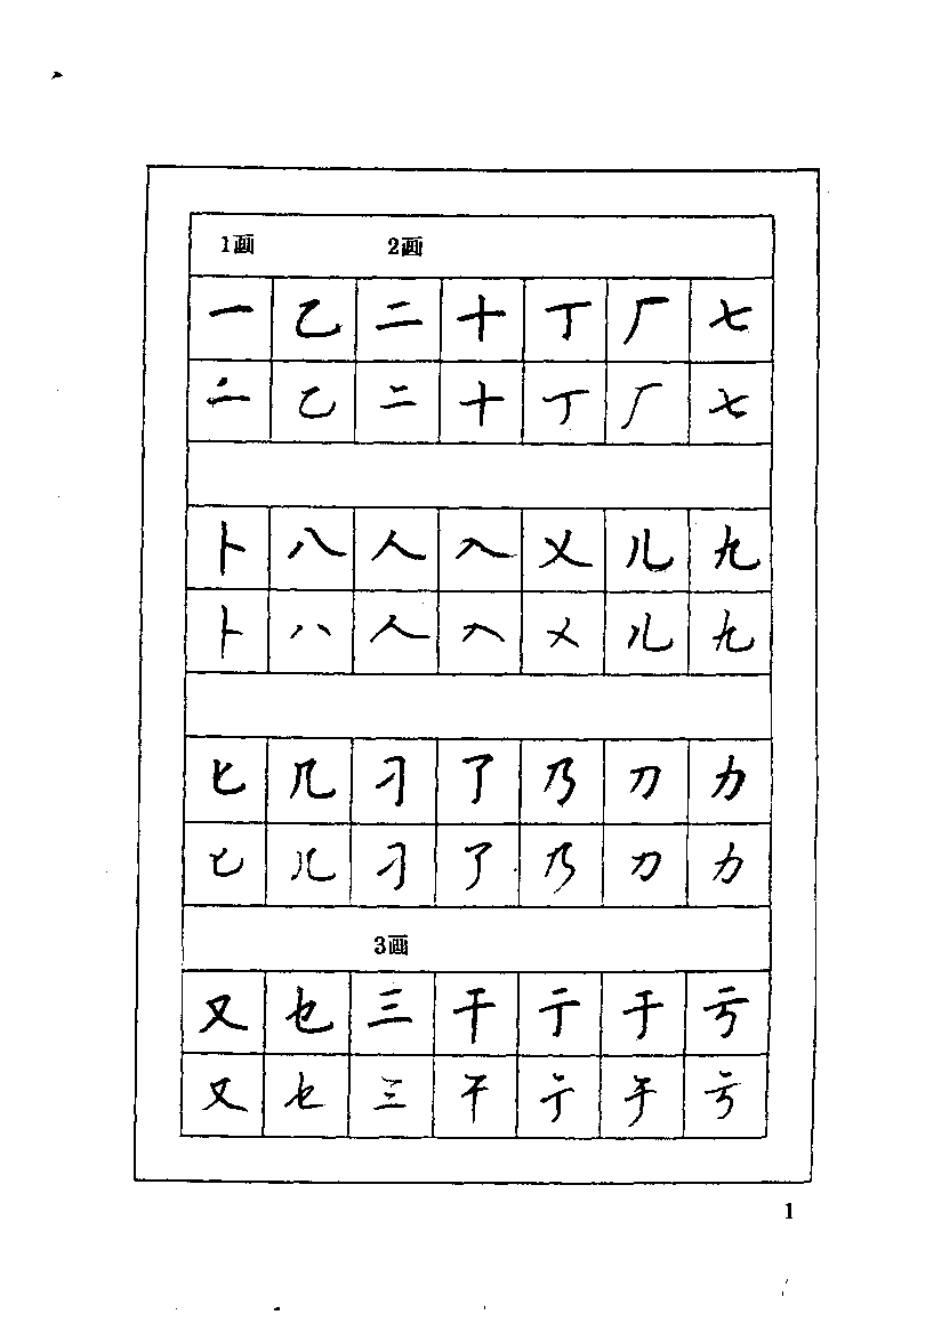 1画 2画
一 乙 二 十 丁 厂 七
一 乙 二 十 丁 厂 七
卜 八 人 入 乂 儿 九
卜 八 人 入 乂 儿 九
匕 几 刁 了 乃 刀 力
匕 几 刁 了 乃 刀 力
3画
又 也 三 干 亍 于 亏
又 也 三 干 亍 于 亏
1